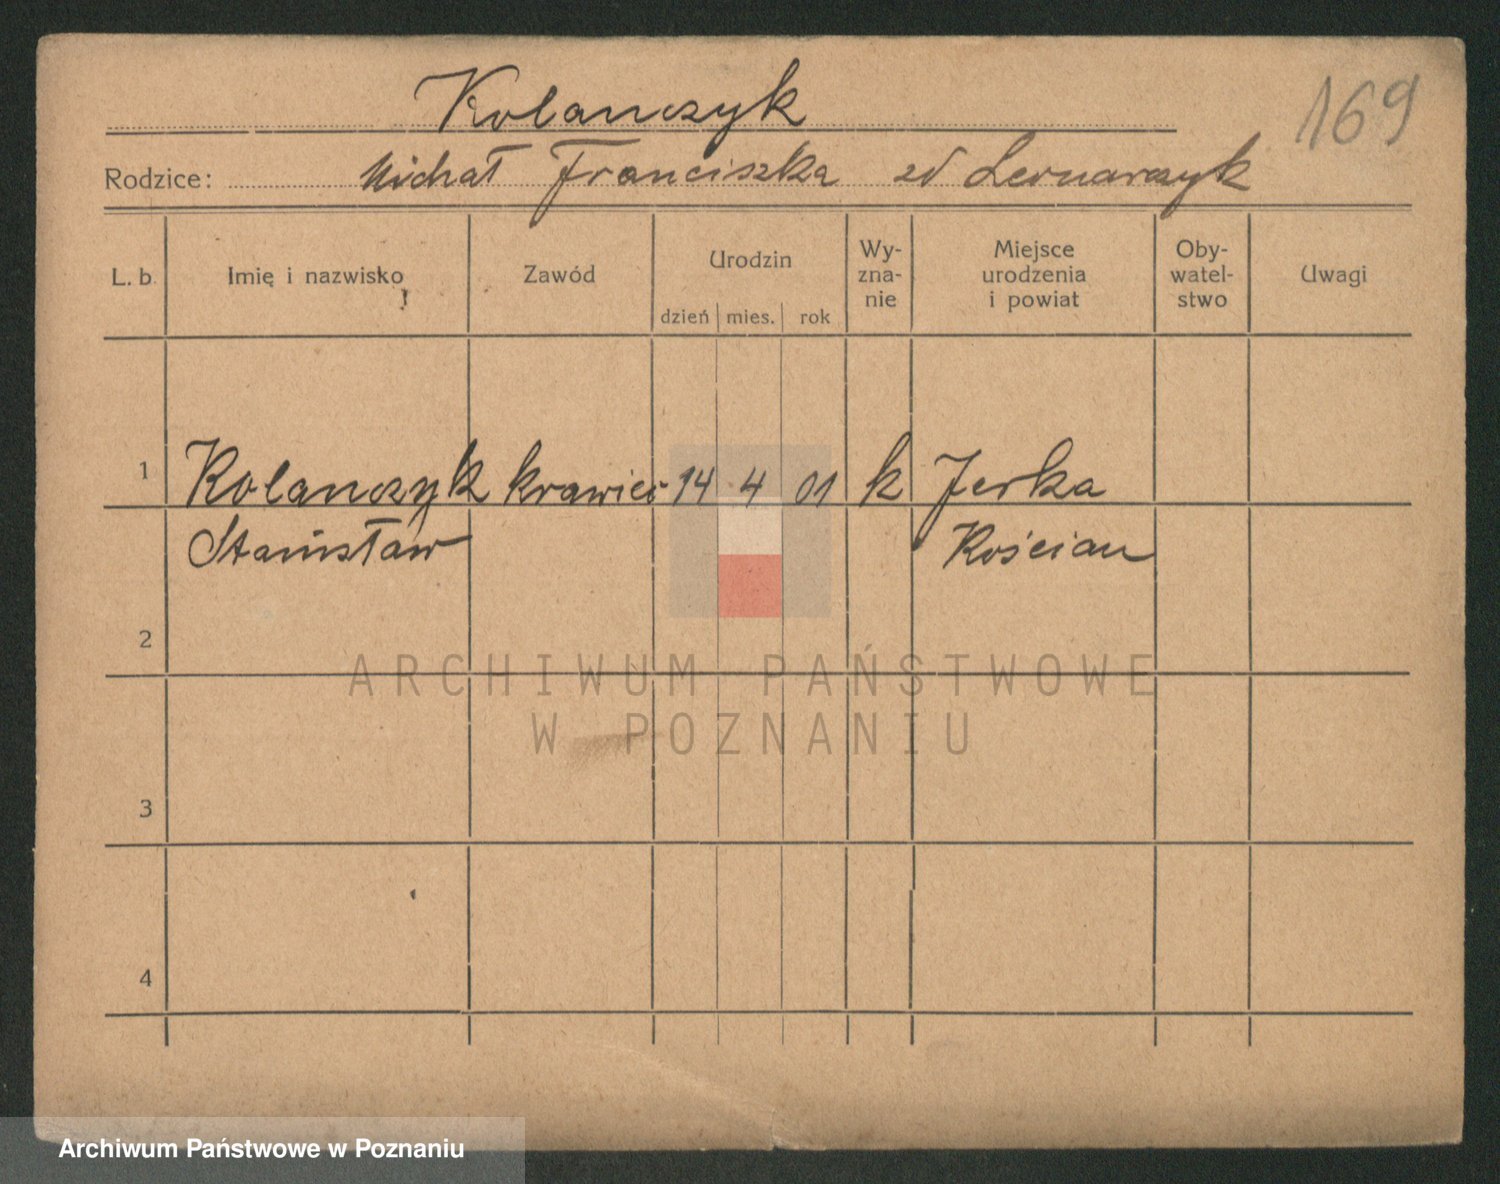 Kolanczyk
169
Rodzice: Michał Franciszka zd Lernarczyk
L. b. Imię i nazwisko Zawód Urodzin Wy-zna-nie Miejsce urodzenia i powiat Oby-watel-stwo Uwagi
dzień mies. rok
1 Kolanczyk krawiec 14 4 01 k Jerka
Stanisław Kościan
2
ARCHIWUM PAŃSTWOWE
W POZNANIU
3
4
Archiwum Państwowe w Poznaniu